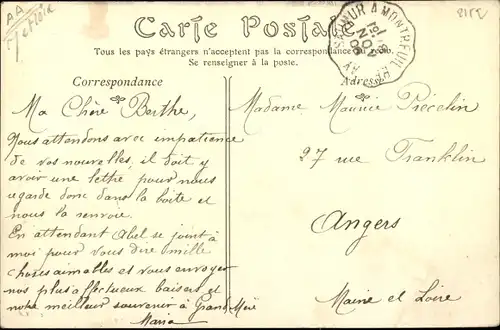 AA
2152
Carte Postale
SAUMUR A MONTREUIL
Tous les pays étrangers n'acceptent pas la correspondance au recto.
Se renseigner à la poste.
Correspondance
Adresse
Ma Chère Berthe,
Nous attendons avec impatience
de vos nouvelles, il doit y
avoir une lettre pour nous
regarde donc dans la boite et
nous la renvoie.
En attendant Abel se joint à
moi pour vous dire mille
choses aimables et vous envoyer
nos plus affectueux baisers et
notre meilleur souvenir à Grand Mère
Maria
Madame Maurice Précelin
27 rue Franklin
Angers
Maine et Loire